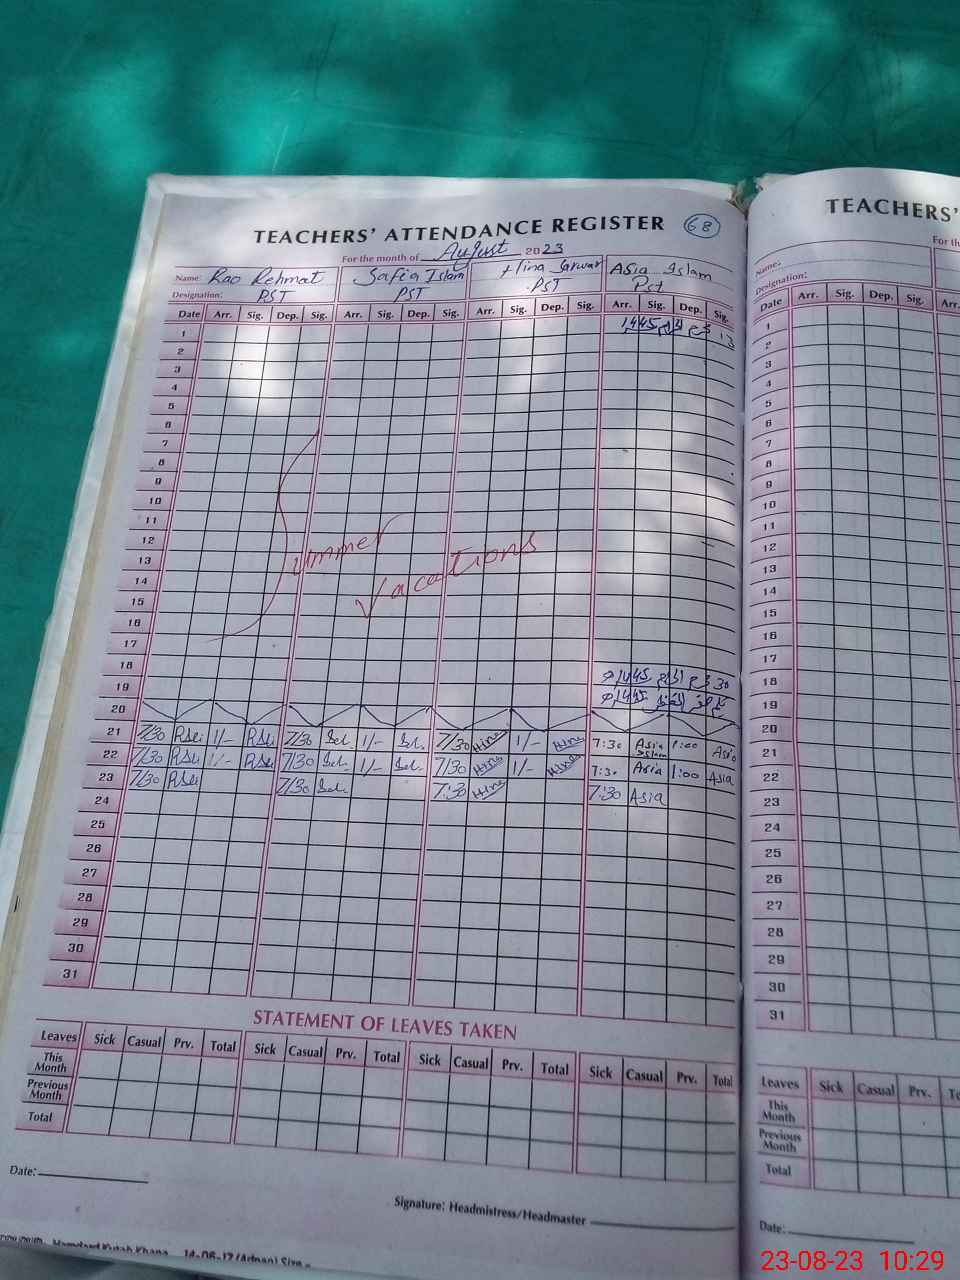 TEACHERS' ATTENDANCE REGISTER 68
For the month of August 2023
Name: Rao Rehmat Safia Islam Hina Sarwar Asia Islam
Designation: PST PST PST Pst
Date Arr. Sig. Dep. Sig. Arr. Sig. Dep. Sig. Arr. Sig. Dep. Sig. Arr. Sig. Dep. Sig.
1
2
3
4
5
6
7
8
9
10
11
12
Summer
13
Vacations
14
15
16
17
18
19
20
21 7/30 1/- 7/30 1/- 7/30 Hina 1/- Hina 7:30 Asia Islam 1:00 Asia
22 7/30 1/- 7/30 1/- 7/30 Hina 1/- Hina 7:30 Asia 1:00 Asia
23 7/30 7/30 7:30 Hina 7:30 Asia
24
25
26
27
28
29
30
31
STATEMENT OF LEAVES TAKEN
Leaves Sick Casual Prv. Total Sick Casual Prv. Total Sick Casual Prv. Total Sick Casual Prv. Total
This Month
Previous Month
Total
Date:
Signature: Headmistress/Headmaster
TEACHERS'
For th
Name:
Designation:
Date Arr. Sig. Dep. Sig. Arr.
1
2
3
4
5
6
7
8
9
10
11
12
13
14
15
16
17
18
19
20
21
22
23
24
25
26
27
28
29
30
31
Leaves Sick Casual Prv.
This Month
Previous Month
Total
Date:
23-08-23 10:29